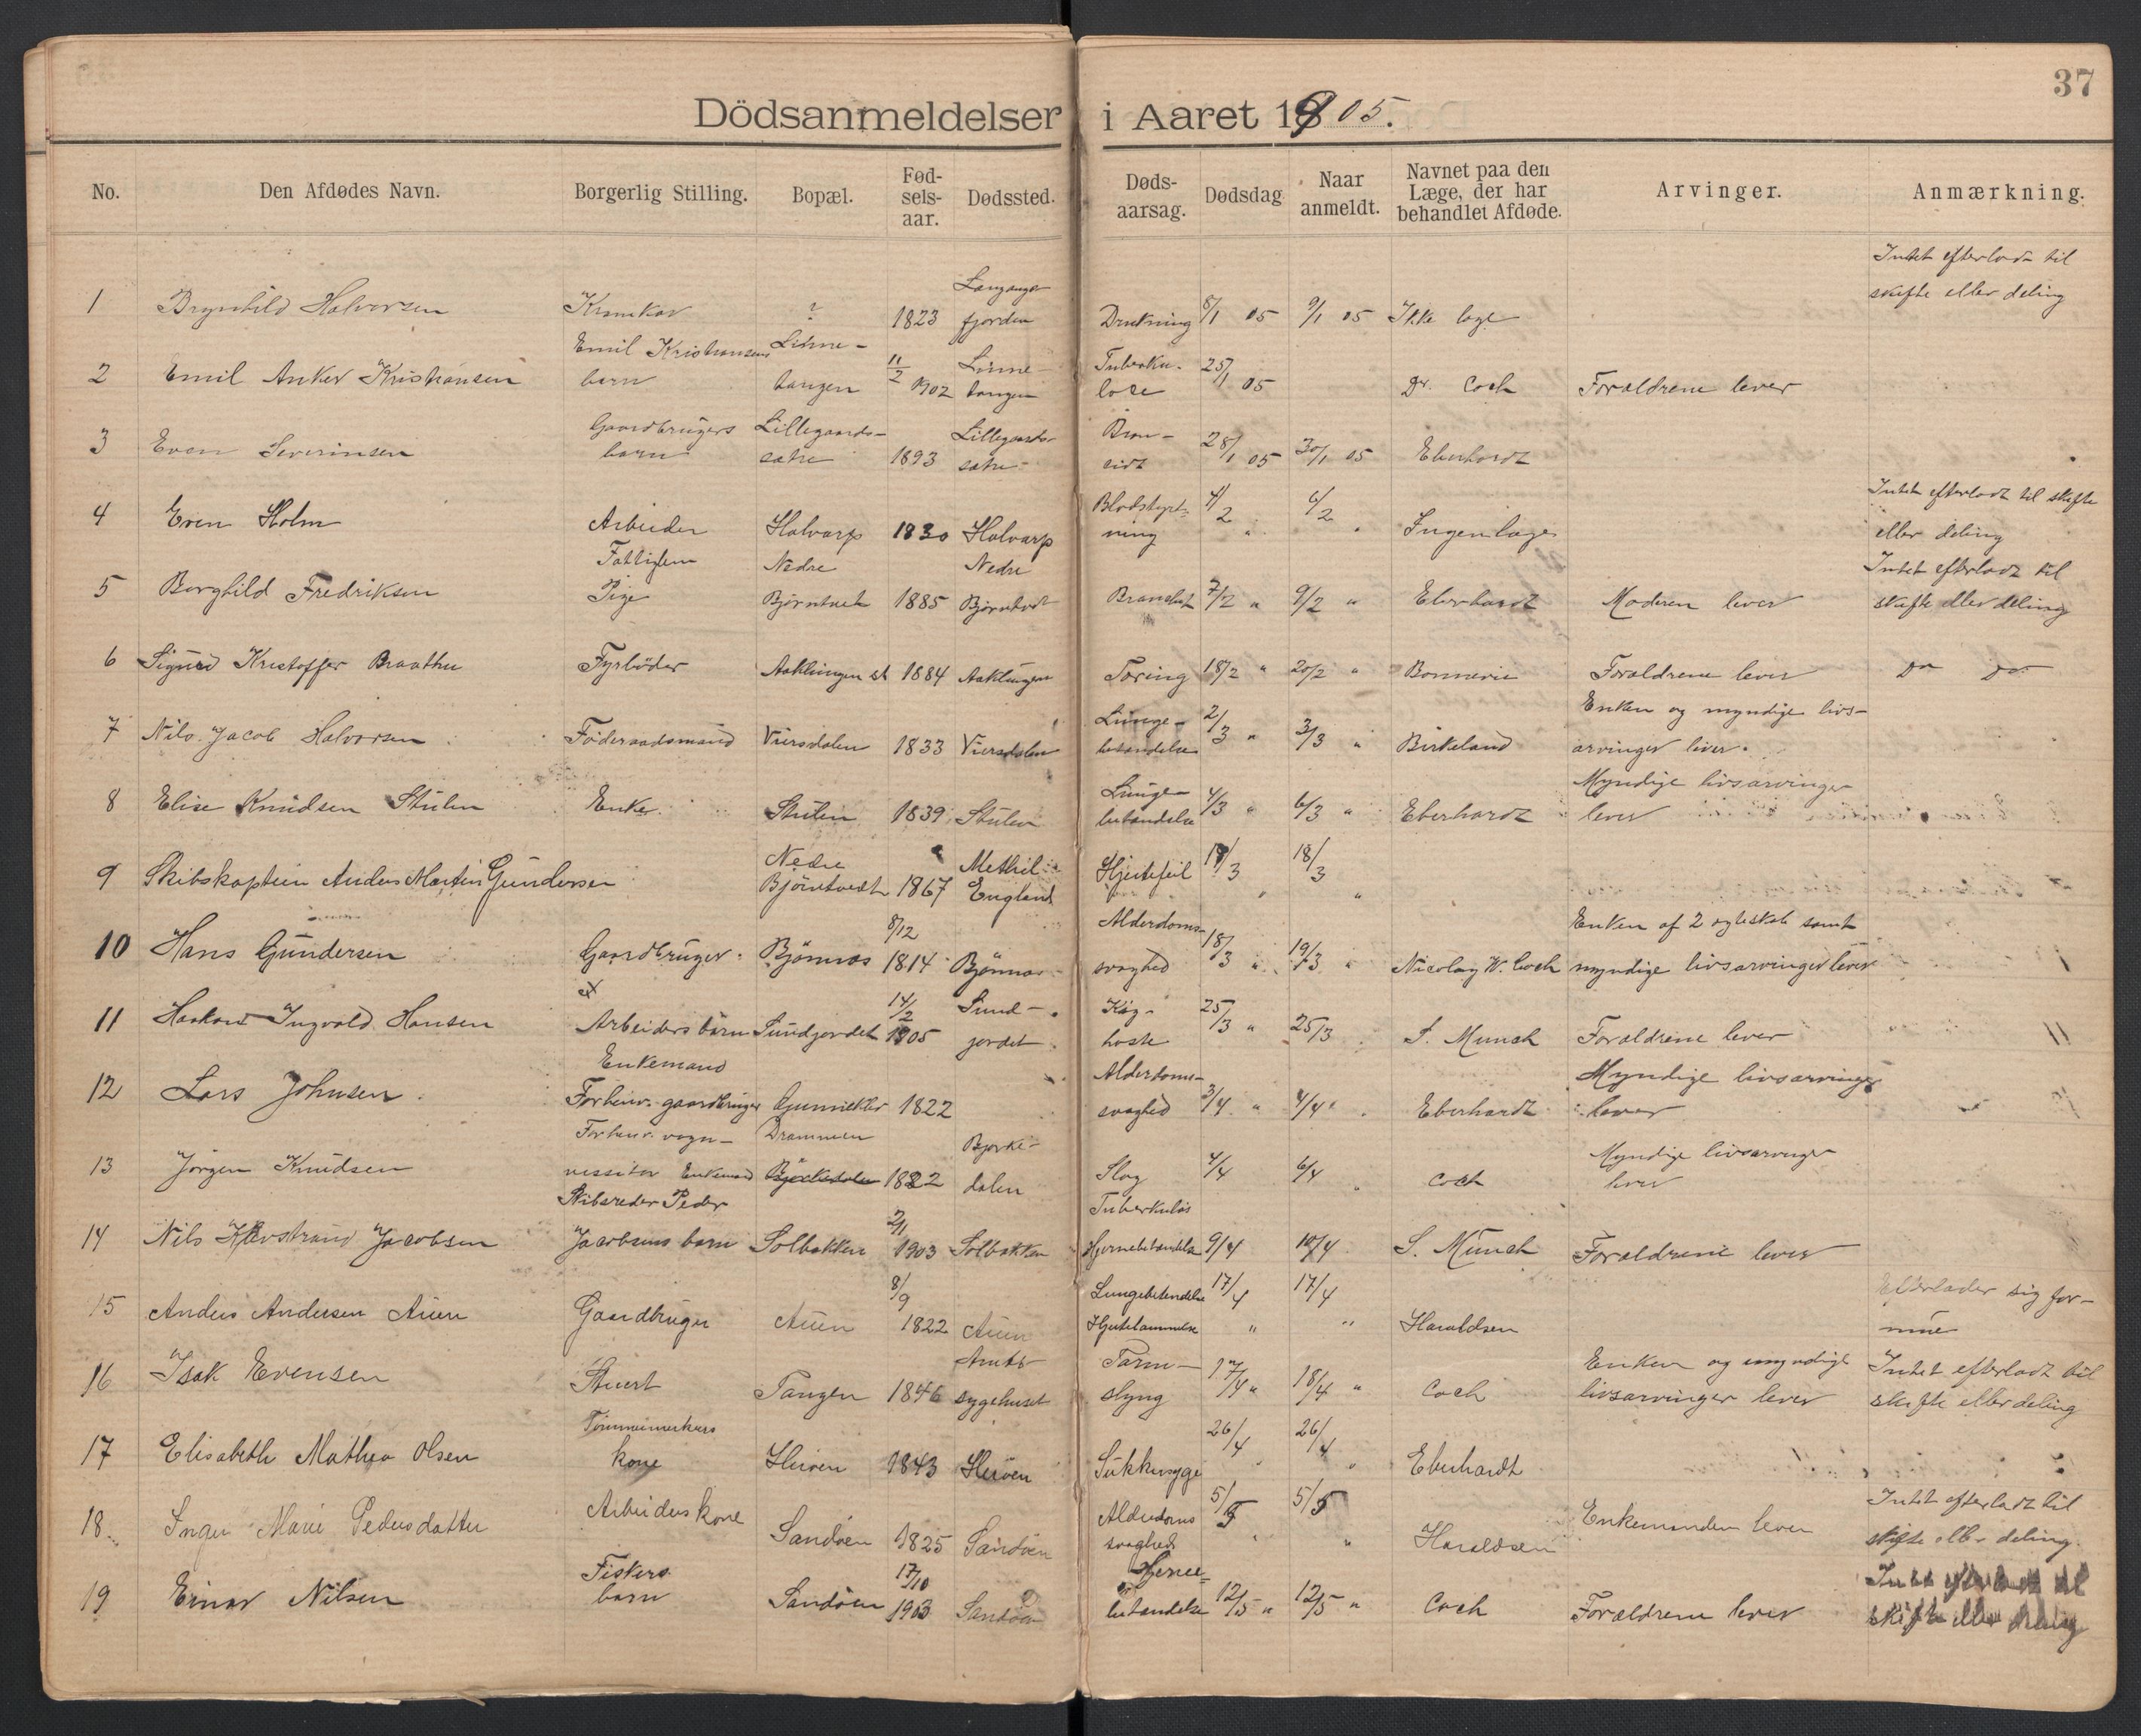 37
Dödsanmeldelser i Aaret 1905.
No. Den Afdødes Navn. Borgerlig Stilling. Bopæl. Fød-sels-aar. Dødssted. Døds-aarsag. Dødsdag. Naar anmeldt. Navnet paa den Læge, der har behandlet Afdøde. Arvinger. Anmærkning.
Langangs Intet efterladt til
1 Brynhild Halvorsen ? 1823 fjorden Drukning 8/1 05 9/1 05 Ikke læge skifte eller deling
Emil Kristiansens 11/2 Tuberku-
2 Emil Anker Kristiansen barn tangen 1902 tangen lose 25/1 05 Dr. Coch Forældrene lever
Gaardbrugers Lillegaards- Lillegaards-
3 Even Severinsen barn sætre 1893 sætre 28/1 05 30/1 05 Eberhardt
Blodstyrt- Intet efterladt til skifte
4 Even Holm Arbeider Halvarp 1830 Halvarp ning 4/2 " 6/2 " Ingen læge eller deling
Fattiglem Nedre Nedre Intet efterladt til
5 Borghild Fredriksen Pige Bjørntvet 1885 Bjørntvedt 7/2 " 9/2 " Eberhardt Moderen lever skifte eller deling
6 Sigurd Kristoffer Braathen Fyrbøder Aaklungen st 1884 Aaklungen Tæring 18/2 " 20/2 " Bonnevie Forældrene lever Do Do
Lunge- Enken og myndige livs-
7 Nils Jacob Halvorsen Föderaadsmand Viersdalen 1833 Viersdalen betændelse 2/3 " 3/3 " Birkeland arvinger lever.
Lunge- Myndige livsarvinger
8 Elise Knudsen Stulen Enke Stulen 1839 Stulen betændelse 4/3 " 6/3 " Eberhardt lever
Nedre Methil
9 Skibskaptein Anders Martin Gundersen Bjørntvedt 1867 England Hjertefeil 17/3 " 18/3 "
8/12 Alderdoms- Enken af 2 egteskab samt
10 Hans Gundersen Gaardbruger Bjönnes 1814 Bjönnes svaghed 18/3 " 19/3 " Nicolay W. Coch myndige livsarvinger lever
14/2 Sund- Kig-
11 Haakon Ingvald Hansen Arbeiders barn Sundjordet 1905 jordet hoste 25/3 " 25/3 S. Munch Forældrene lever
Enkemand Alderdoms- Myndige livsarvinger
12 Lars Johnsen Forhenv. gaardbruger Gunnekler 1822 svaghed 3/4 " 4/4 " Eberhardt lever
Forhenv. vogn- Drammen Bjørke- Myndige livsarvinger
13 Jörgen Knudsen vissitør Enkemand Bjørkedalen 1822 dalen Slag 4/4 6/4 " Coch lever
Skibsreder Peder 2/1 Tuberkuløs
14 Nils Jacobsen Jacobsens barn Solbakken 1903 Solbakken Hjernebetændelse 9/4 10/4 S. Münch Forældrene lever
8/9 Lungebetændelse Efterlader sig for-
15 Anders Andersen Auen Gaardbruger Auen 1822 Auen Hjertelammelse 17/4 " 17/4 " Haraldsen mue
Amts- Tarm- Enken og umyndige Intet efterladt til
16 Isak Evensen Stuert Tangen 1846 sygehuset slyng 17/4 " 18/4 " Coch livsarvinger lever skifte eller deling
Tømmermands
17 Elisabeth Mathea Olsen kone Herøen 1843 Herøen Sukkersyge 26/4 " 26/4 " Eberhardt
Alderdoms Intet efterladt til
18 Inger Marie Pedersdatter Arbeiders kone Sandöen 1825 Sandöen svaghed 5/5 " 5/5 " Haraldsen Enkemanden lever skifte eller deling
Fiskers 17/10 Hjerne- Intet efterladt til
19 Einar Nilsen barn Sandöen 1903 Sandöen betændelse 12/5 " 12/5 " Coch Forældrene lever skifte eller deling